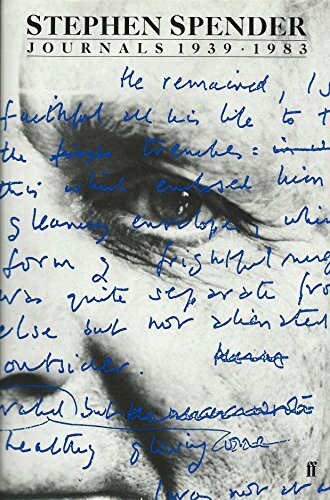 STEPHEN SPENDER
JOURNALS 1939·1983
He remained, I s
faithful all his life to t
the trenches:
this which enclosed him
gleaming envelope, whic
form of frightful
was quite separate fro
else but not alienated
outsider.
but
healthy glowing
I was not at a
ff